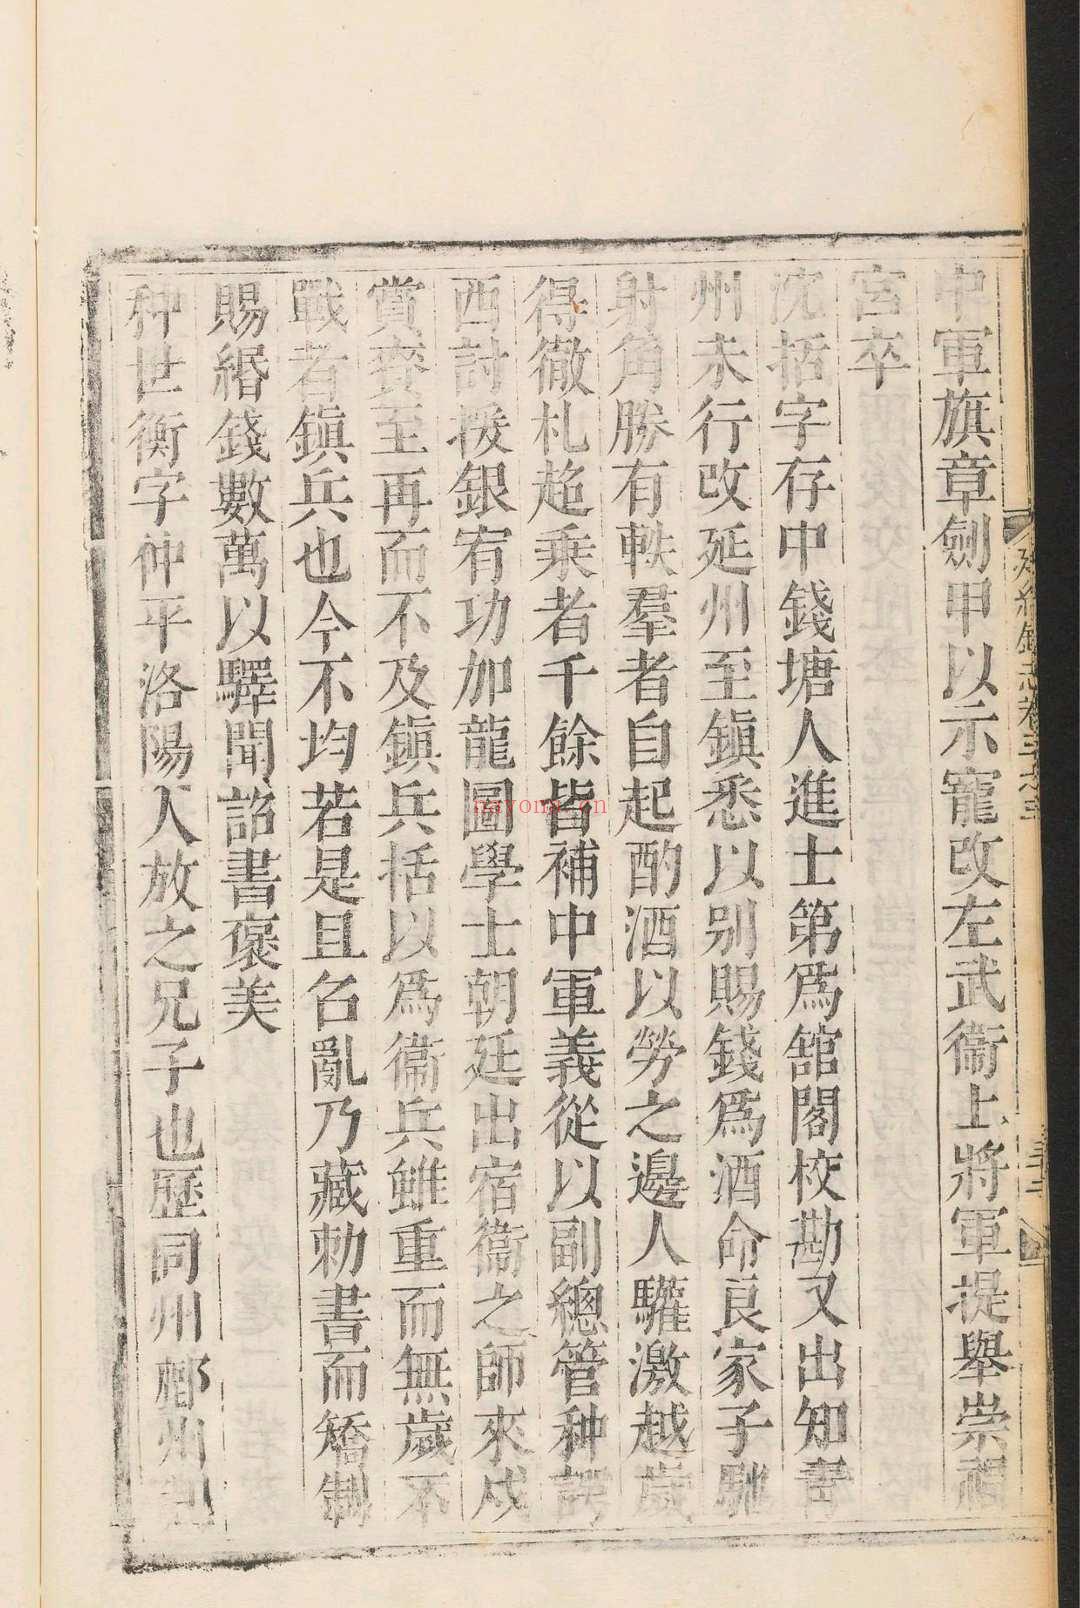 中軍旗章劍甲以示寵改左武衞上將軍提舉崇福
宮卒
沈括字存中錢塘人進士第爲舘閣校勘又出知青
州未行改延州至鎮悉以别賜錢爲酒命良家子馳
射角勝有軼羣者自起酌酒以勞之邊人驩激越歲
得徹札超乘者千餘皆補中軍義從以副總管种諤
西討援銀宥功加龍圖學士朝廷出宿衞之師來戍
賞賚至再而不及鎮兵括以爲衞兵雖重而無歲不
戰者鎮兵也今不均若是且召亂乃藏勅書而矯制
賜緡錢數萬以驛聞詔書褒美
种世衡字仲平洛陽人放之兄子也歷同州鄜州
nayona.cn